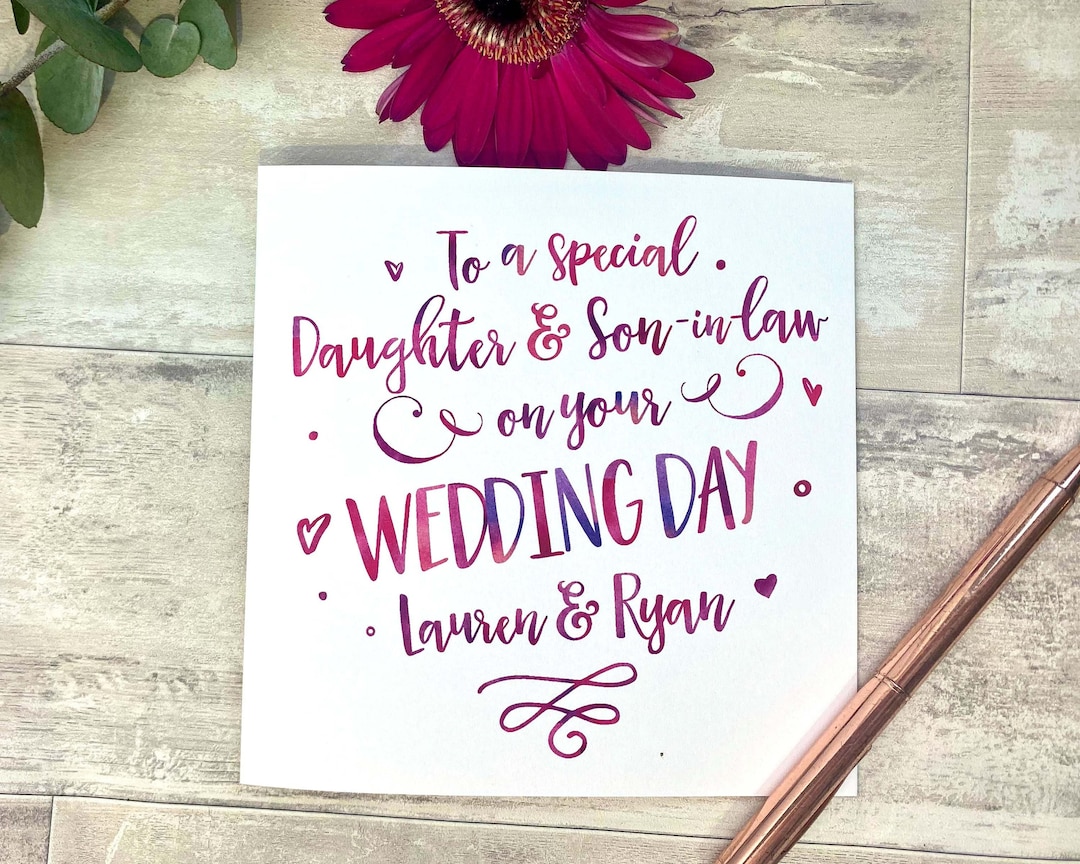 To a special
Daughter & Son-in-law
on your
WEDDING DAY
Lauren & Ryan